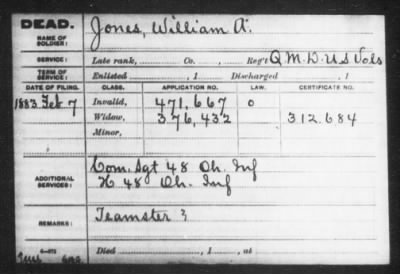 DEAD.
NAME OF SOLDIER: Jones, William A.
SERVICE: Late rank, Co. , Reg't Q.M.D. U S Vols
TERM OF SERVICE: Enlisted , 1 Discharged , 1
DATE OF FILING. CLASS. APPLICATION NO. LAW. CERTIFICATE NO.
1883 Feb 7 Invalid, 471,667 0
Widow, 376,432 312.684
Minor,
ADDITIONAL SERVICES: Com. Sgt 48 Oh. Inf
H 48 Oh. Inf
REMARKS: Teamster
Died , 1 , at